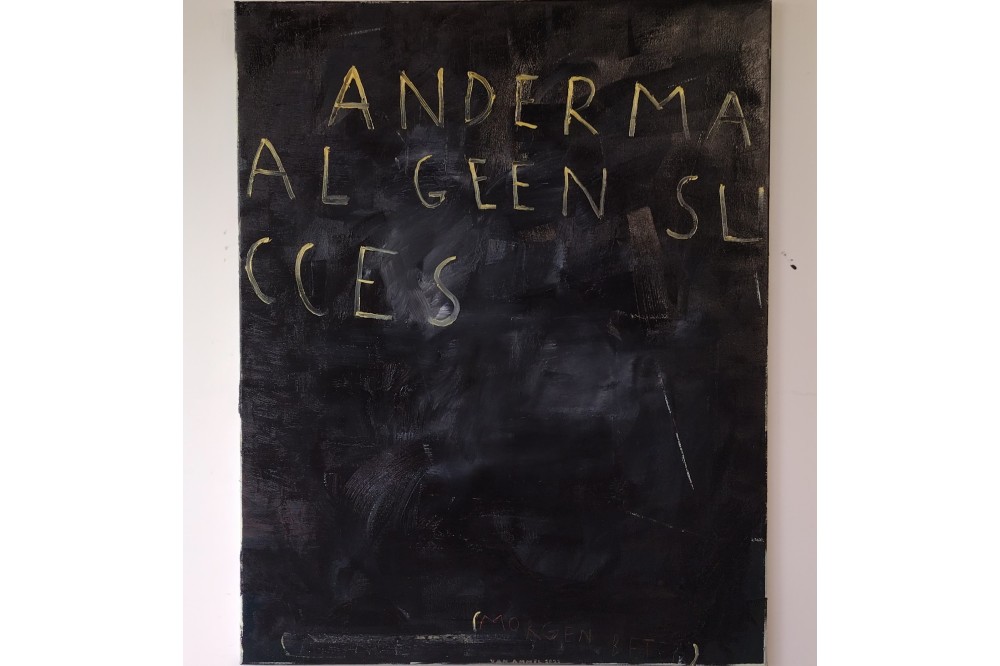 ANDERMA
AL GEEN SU
CCES
(MORGEN BET